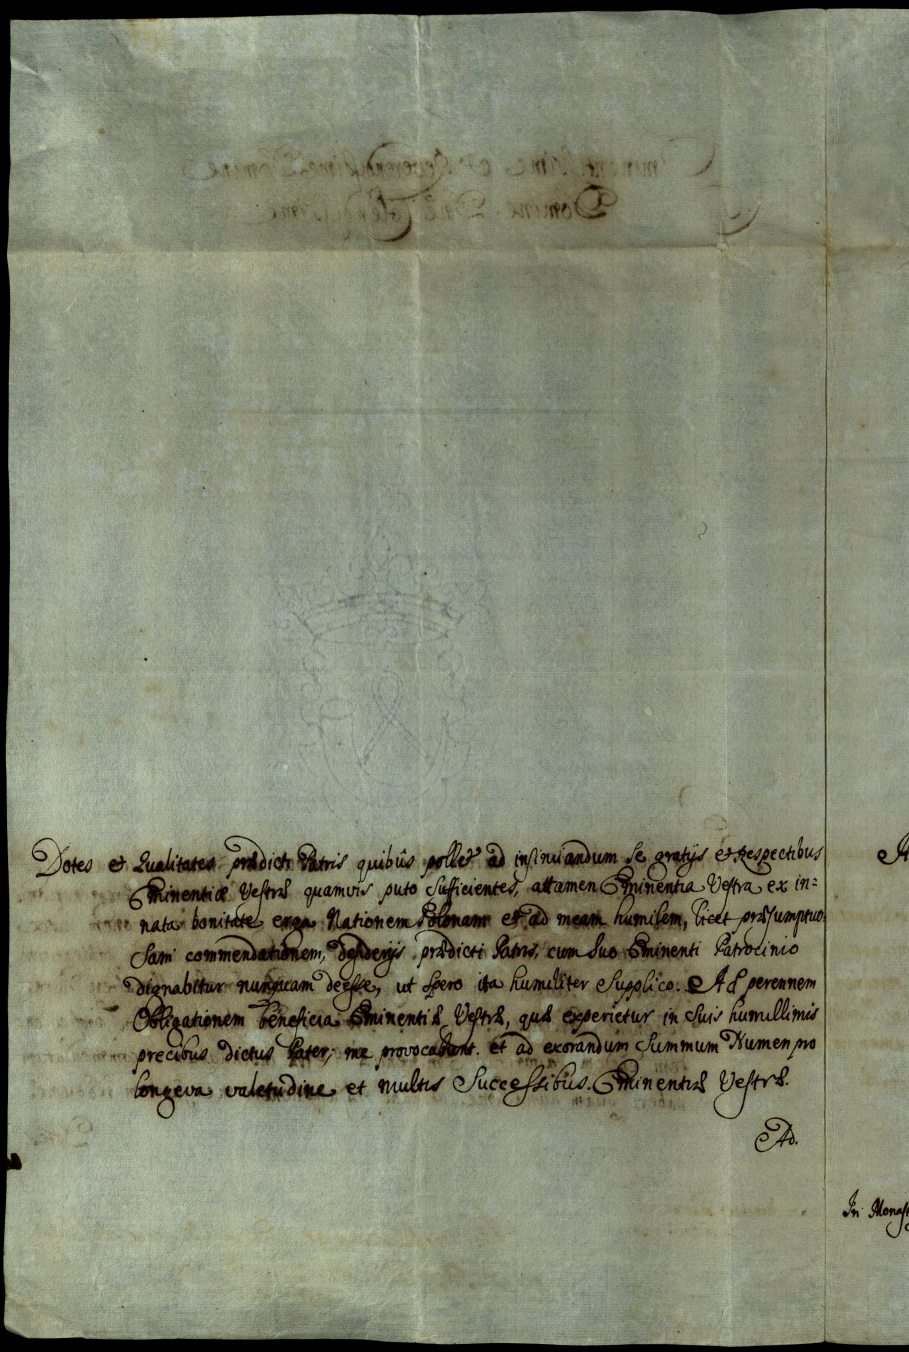 Dotes et Qualitates prædicti Patris quibûs pollet ad insinuandum se gratijs et Respectibus
Eminentiæ Vestræ quamvis puto sufficientes, attamen Eminentia Vestra ex in=
nata bonitate erga Nationem Polonam et ad meam humilem, licet præsumptuo
sam commendationem, desiderijs prædicti Patris, cum suo Eminenti Patrocinio
dignabitur nunquam deesse, ut spero ita humiliter supplico. Ad perennem
Obligationem beneficia Eminentiæ Vestræ, quæ experietur in suis humillimis
precibus dictus Pater, me provocabunt. et ad exorandum Summum Numen pro
longeva valetudine et multis Successibus. Eminentiæ Vestræ.
Ad.
In Monast